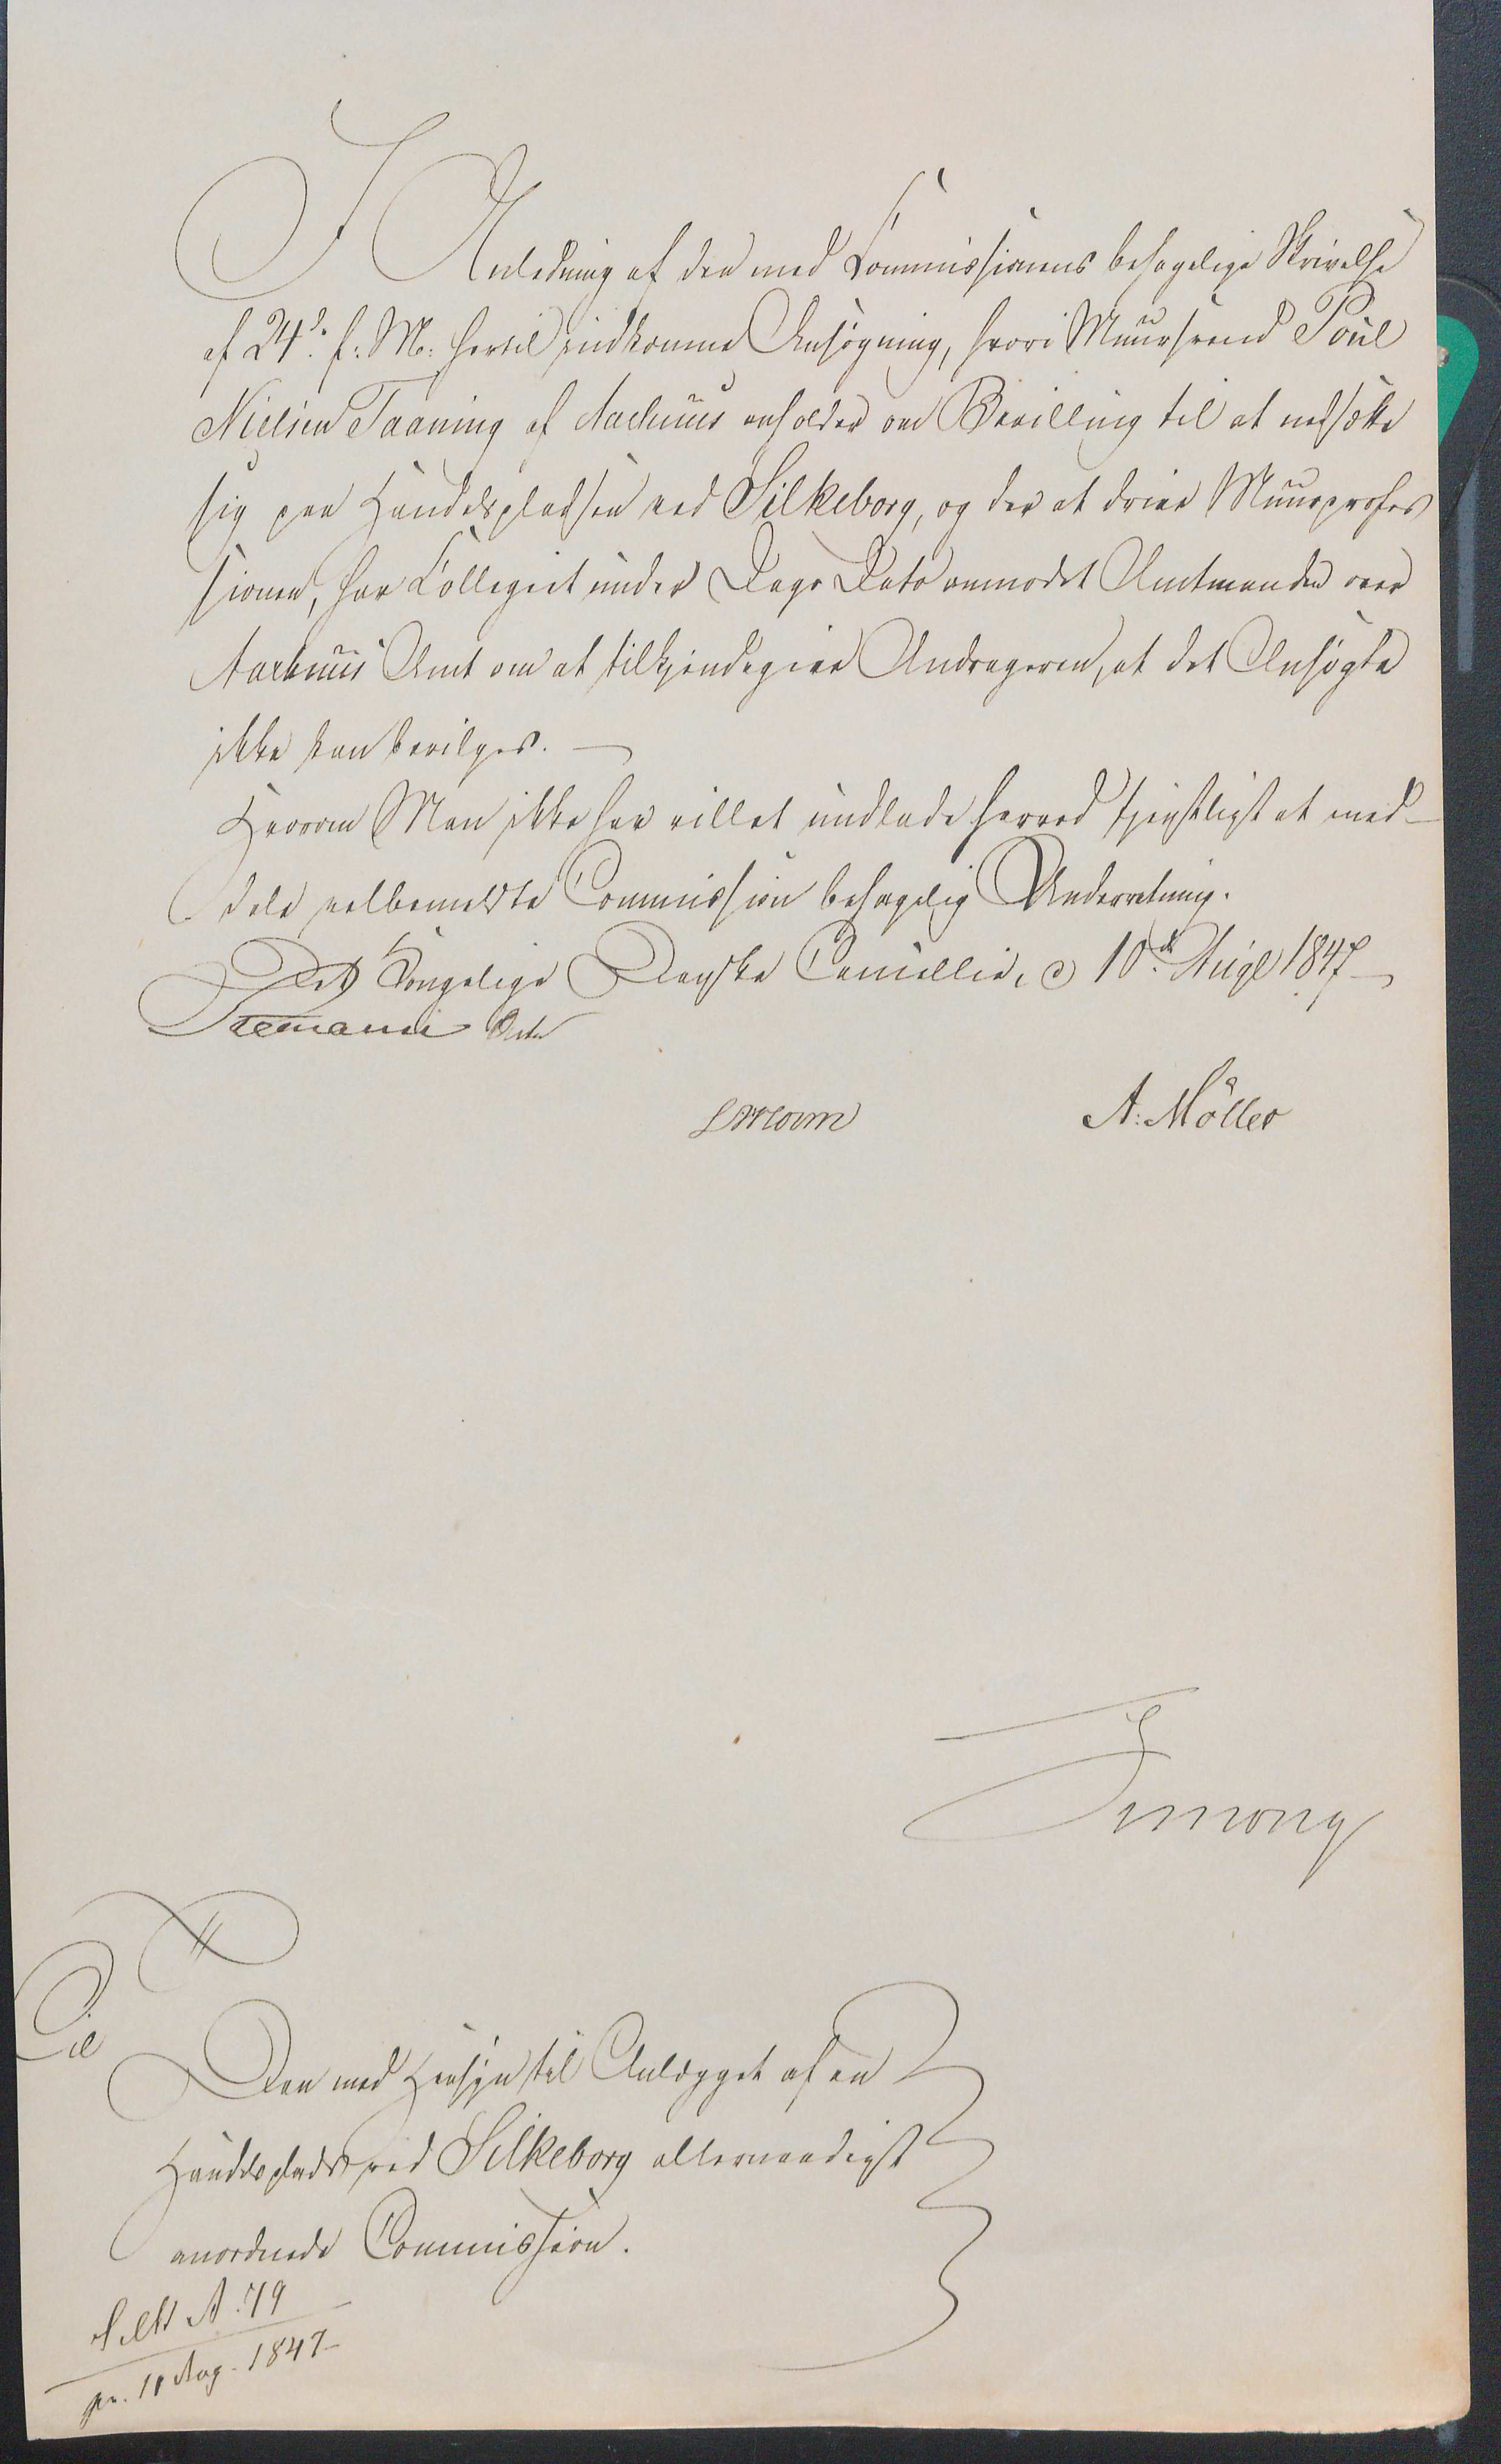 I Anledning af den med Commissionens behagelige Skrivelse
af 24de f: M: hertil indkomne Ansøgning, hvori Muursvend Poul
Nielsen Taaning af Aarhuus anholder om Bevilling til at nedsætte
sig paa Handelspladsen ved Silkeborg, og der at drive Muurprofes
sionen, har Collegiet under Dags Dato anmodet Amtmanden over
Aarhuus Amt om at tilkjendegive Andrageren, at det Ansøgte
ikke kan bevilges. —
Hvorom Man ikke har villet undlade herved tjenstligst at med-
dele velbemeldte Commission behagelig Underretning.
Det Kongelige Danske Cancellie, d 10de Augt 1847
Stemann
A: Møller
Til
Den med Hensyn til Anlægget af en
Handelsplads ved Silkeborg allernaadigst
anordnede Commission.
Silk A. 79
pr. 11 Aug. 1847